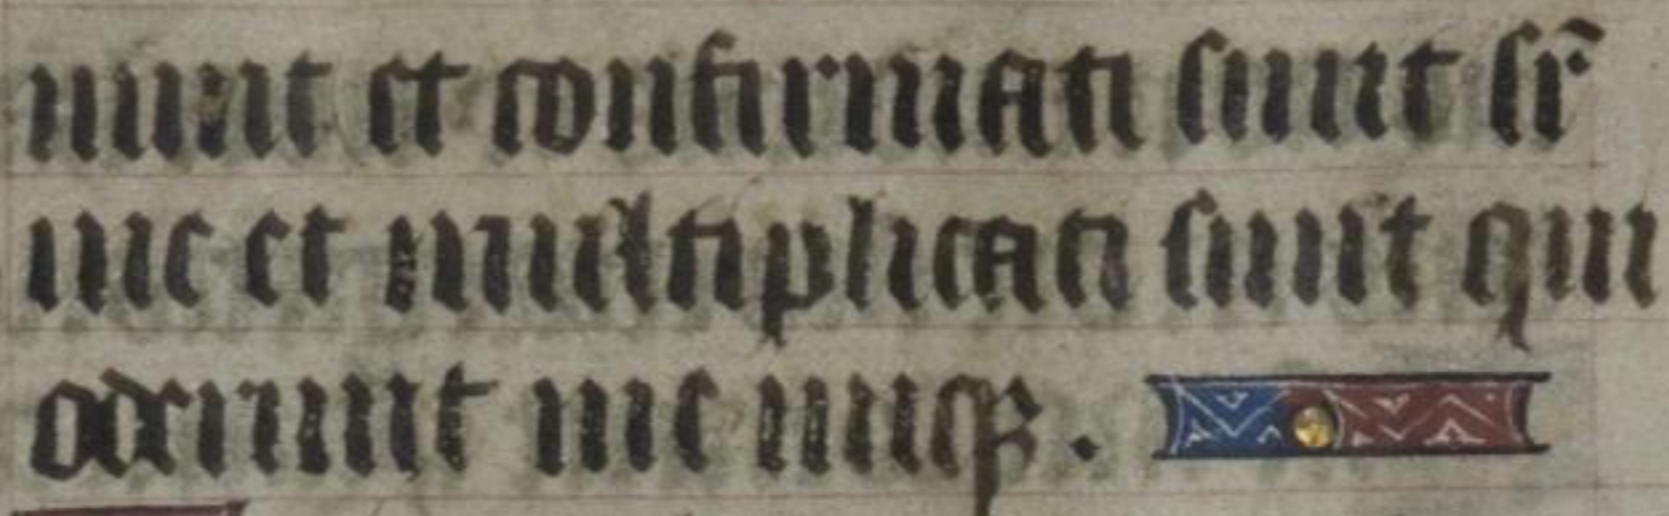 uunt et confirmati sunt sr̄
me et multiplicati sunt qui
oderunt me iniqꝫ.